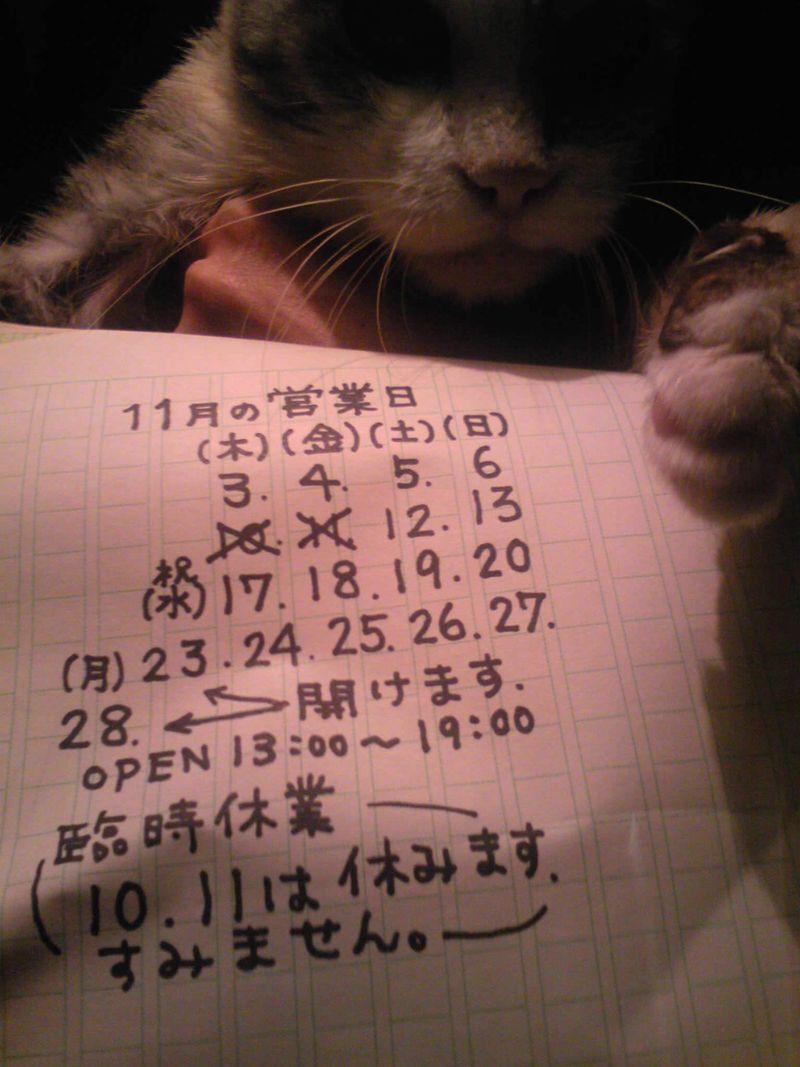 11月の営業日
(木)(金)(土)(日)
3. 4. 5. 6
10. 11. 12. 13
祝
(水) 17. 18. 19. 20
(月) 23. 24. 25. 26. 27.
28. 開けます.
OPEN 13:00~19:00
臨時休業
10.11は休みます.
すみません。